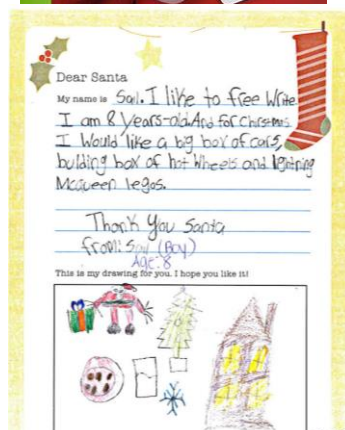 Dear Santa
My name is Sail. I like to free Write
I am 8 Years-old. And for Christmas
I Would like a big box of cars,
bulding box of hot Wheels and lightning
Mcqueen legos.
Thank You Santa
from: (Boy)
Age: 8
This is my drawing for you. I hope you like it!